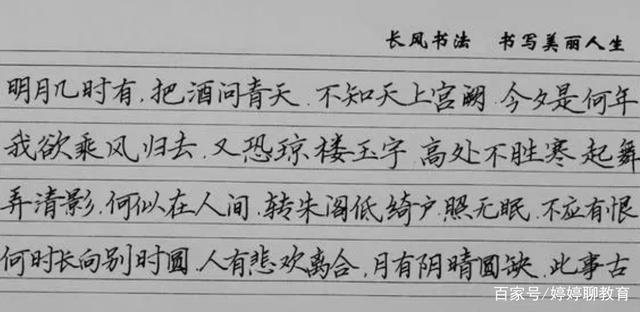 长风书法 书写美丽人生
明月几时有,把酒问青天.不知天上宫阙.今夕是何年
我欲乘风归去.又恐琼楼玉宇.高处不胜寒起舞
弄清影.何似在人间.转朱阁低绮户.照无眠.不应有恨
何时长向别时圆.人有悲欢离合,月有阴晴圆缺.此事古
百家号/婷婷聊教育